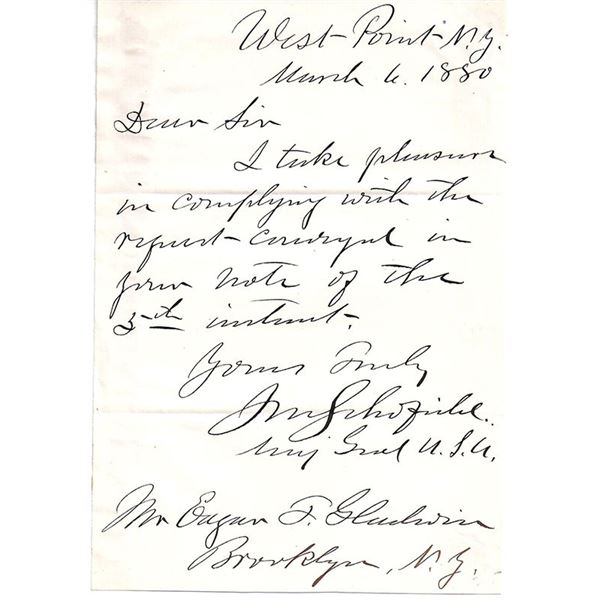 West-Point-N.Y.
March 6. 1880
Dear Sir
I take pleasure
in complying with the
request conveyed in
your note of the
5th instant.
Yours Truly
JMSchofield.
Maj Genl U.S.A.
Mr Edgar F. Gladwin
Brooklyn, N.Y.